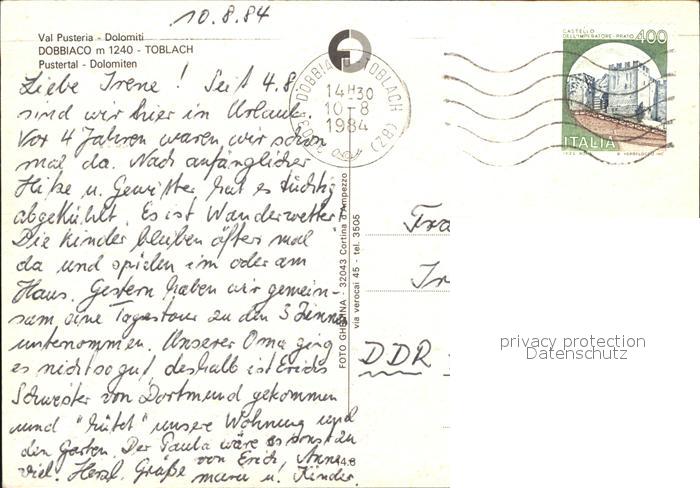 10.8.84
Val Pusteria - Dolomiti
DOBBIACO m 1240 - TOBLACH
Pustertal - Dolomiten
Liebe Irene! Seit 4.8
sind wir hier in Urlaub.
Vor 4 Jahren waren wir schon
mal da. Nach anfänglicher
Hitze u. Gewitter hat es tüchtig
abgekühlt. Es ist Wanderwetter!
Die Kinder bleiben öfters mal
da und spielen im oder am
Haus. Gestern haben wir gemein-
sam eine Tagestour zu den 3 Zinnen
unternommen. Unserer Oma ging
es nicht so gut deshalb ist Erichs
Schwester von Dortmund gekommen
und "hütet" unsere Wohnung und
den Garten. Der Paula wäre es sonst zu
viel. Herzl. Grüße von Erich, Anne-
marie u. Kinder.
DOBBIACO - TOBLACH
14H30
10-8
1984
39034
(BZ)
CASTELLO
DELL'IMPERATORE - PRATO
400
ITALIA
FOTO GHEDINA - 32043 Cortina d'Ampezzo
via verocai 45 - tel. 3505
4.8
Fra
Ir
DDR
privacy protection
Datenschutz